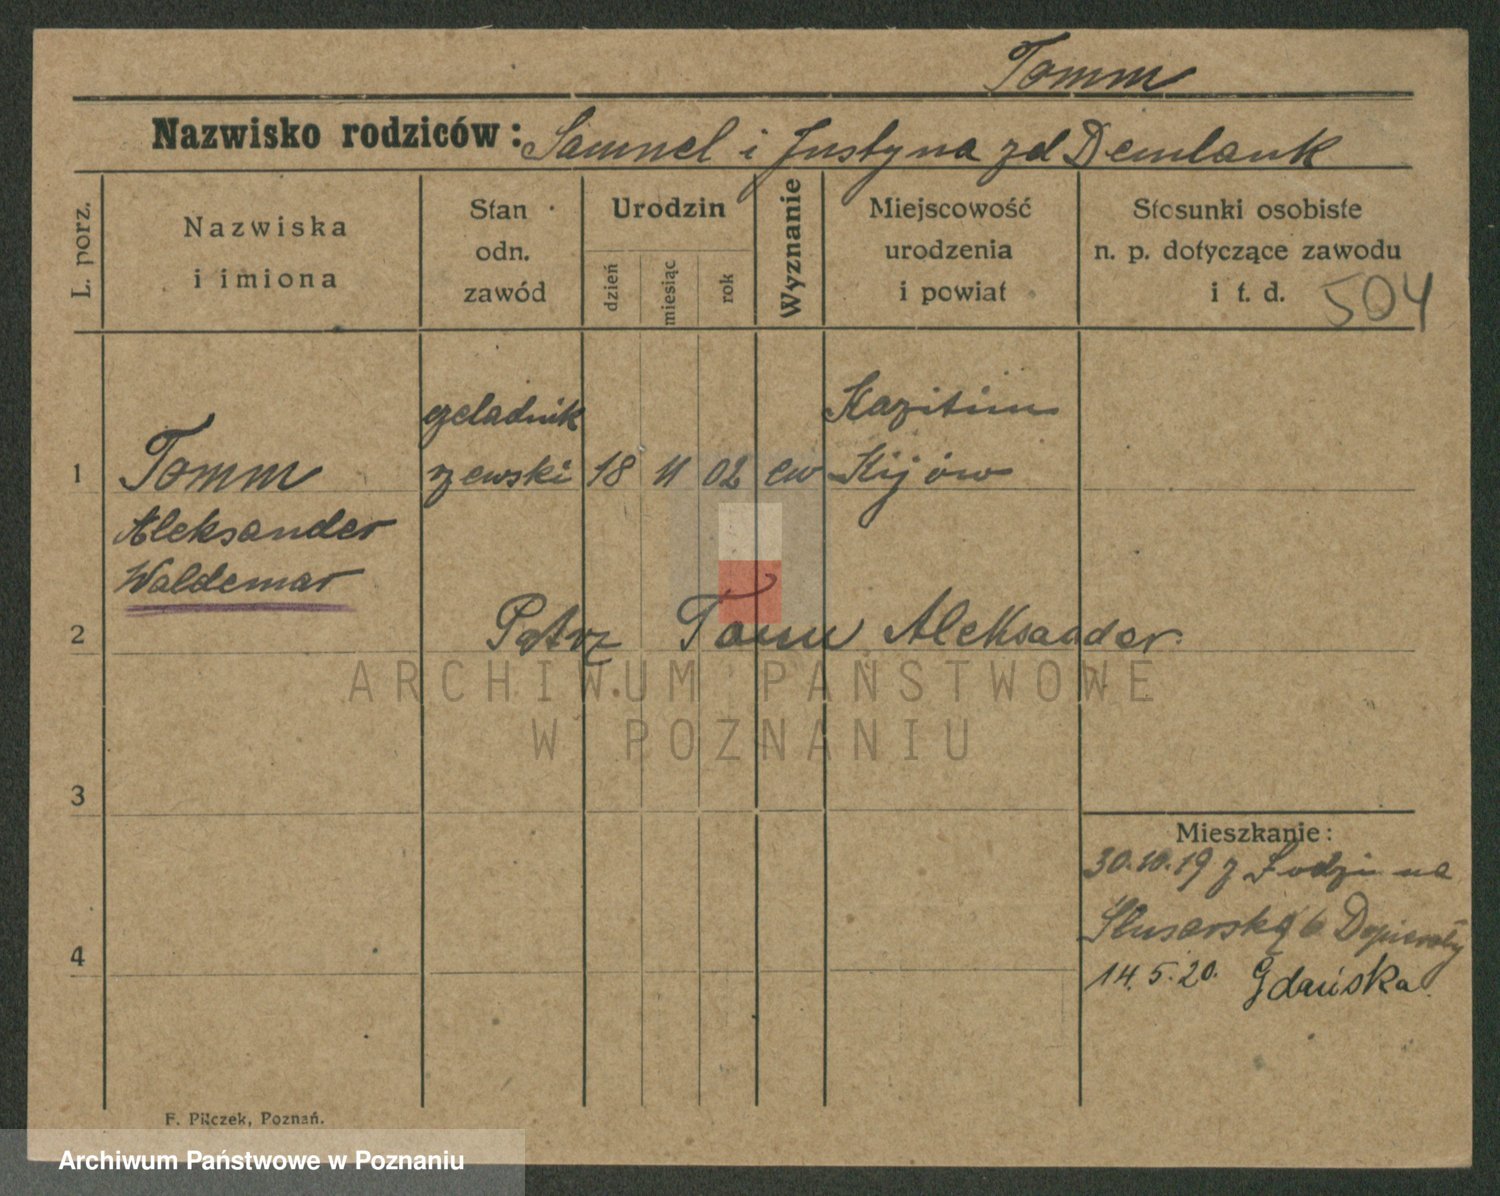 Tomm
Nazwisko rodziców: Samuel i Justyna zd Demlank
L. porz.
Nazwiska
i imiona
Stan
odn.
zawód
Urodzin
dzień
miesiąc
rok
Wyznanie
Miejscowość
urodzenia
i powiat
Stosunki osobiste
n. p. dotyczące zawodu
i t. d.
504
1
Tomm
Aleksander
Waldemar
czeladnik
rzewski
18
11
02
ew
Kazitim
Kijów
2
Patrz Tomm Aleksander.
ARCHIWUM PAŃSTWOWE
W POZNANIU
3
4
Mieszkanie:
30.10.19 z Łodzi na
Ślusarską 6 Dopierały
14.5.20. Gdańska.
F. Pilczek, Poznań.
Archiwum Państwowe w Poznaniu